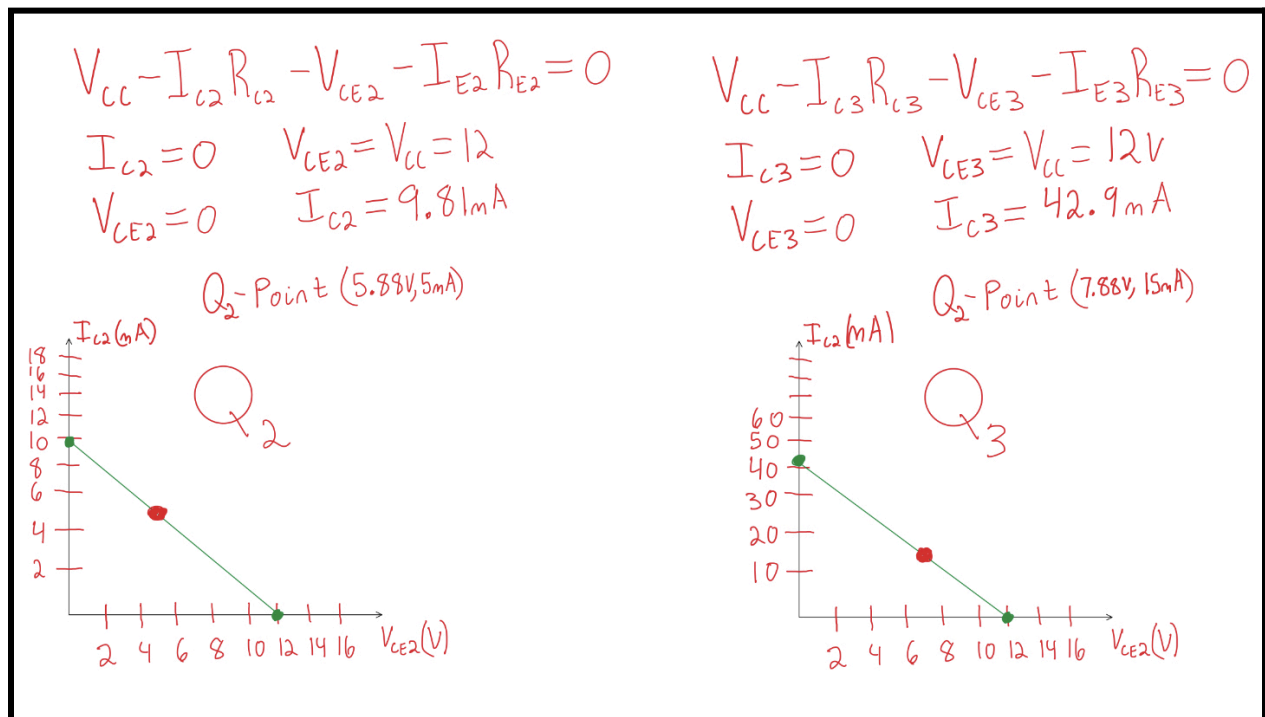 V_CC - I_C2 R_C2 - V_CE2 - I_E2 R_E2 = 0
I_C2 = 0 V_CE2 = V_CC = 12
V_CE2 = 0 I_C2 = 9.81mA
Q_2-Point (5.88V, 5mA)
I_C2 (mA)
18
16
14
12
10
8
6
4
2
2
2 4 6 8 10 12 14 16
V_CE2 (V)
V_CC - I_C3 R_C3 - V_CE3 - I_E3 R_E3 = 0
I_C3 = 0 V_CE3 = V_CC = 12V
V_CE3 = 0 I_C3 = 42.9mA
Q_2-Point (7.88V, 15mA)
I_C2 (mA)
60
50
40
30
20
10
3
2 4 6 8 10 12 14 16
V_CE2 (V)